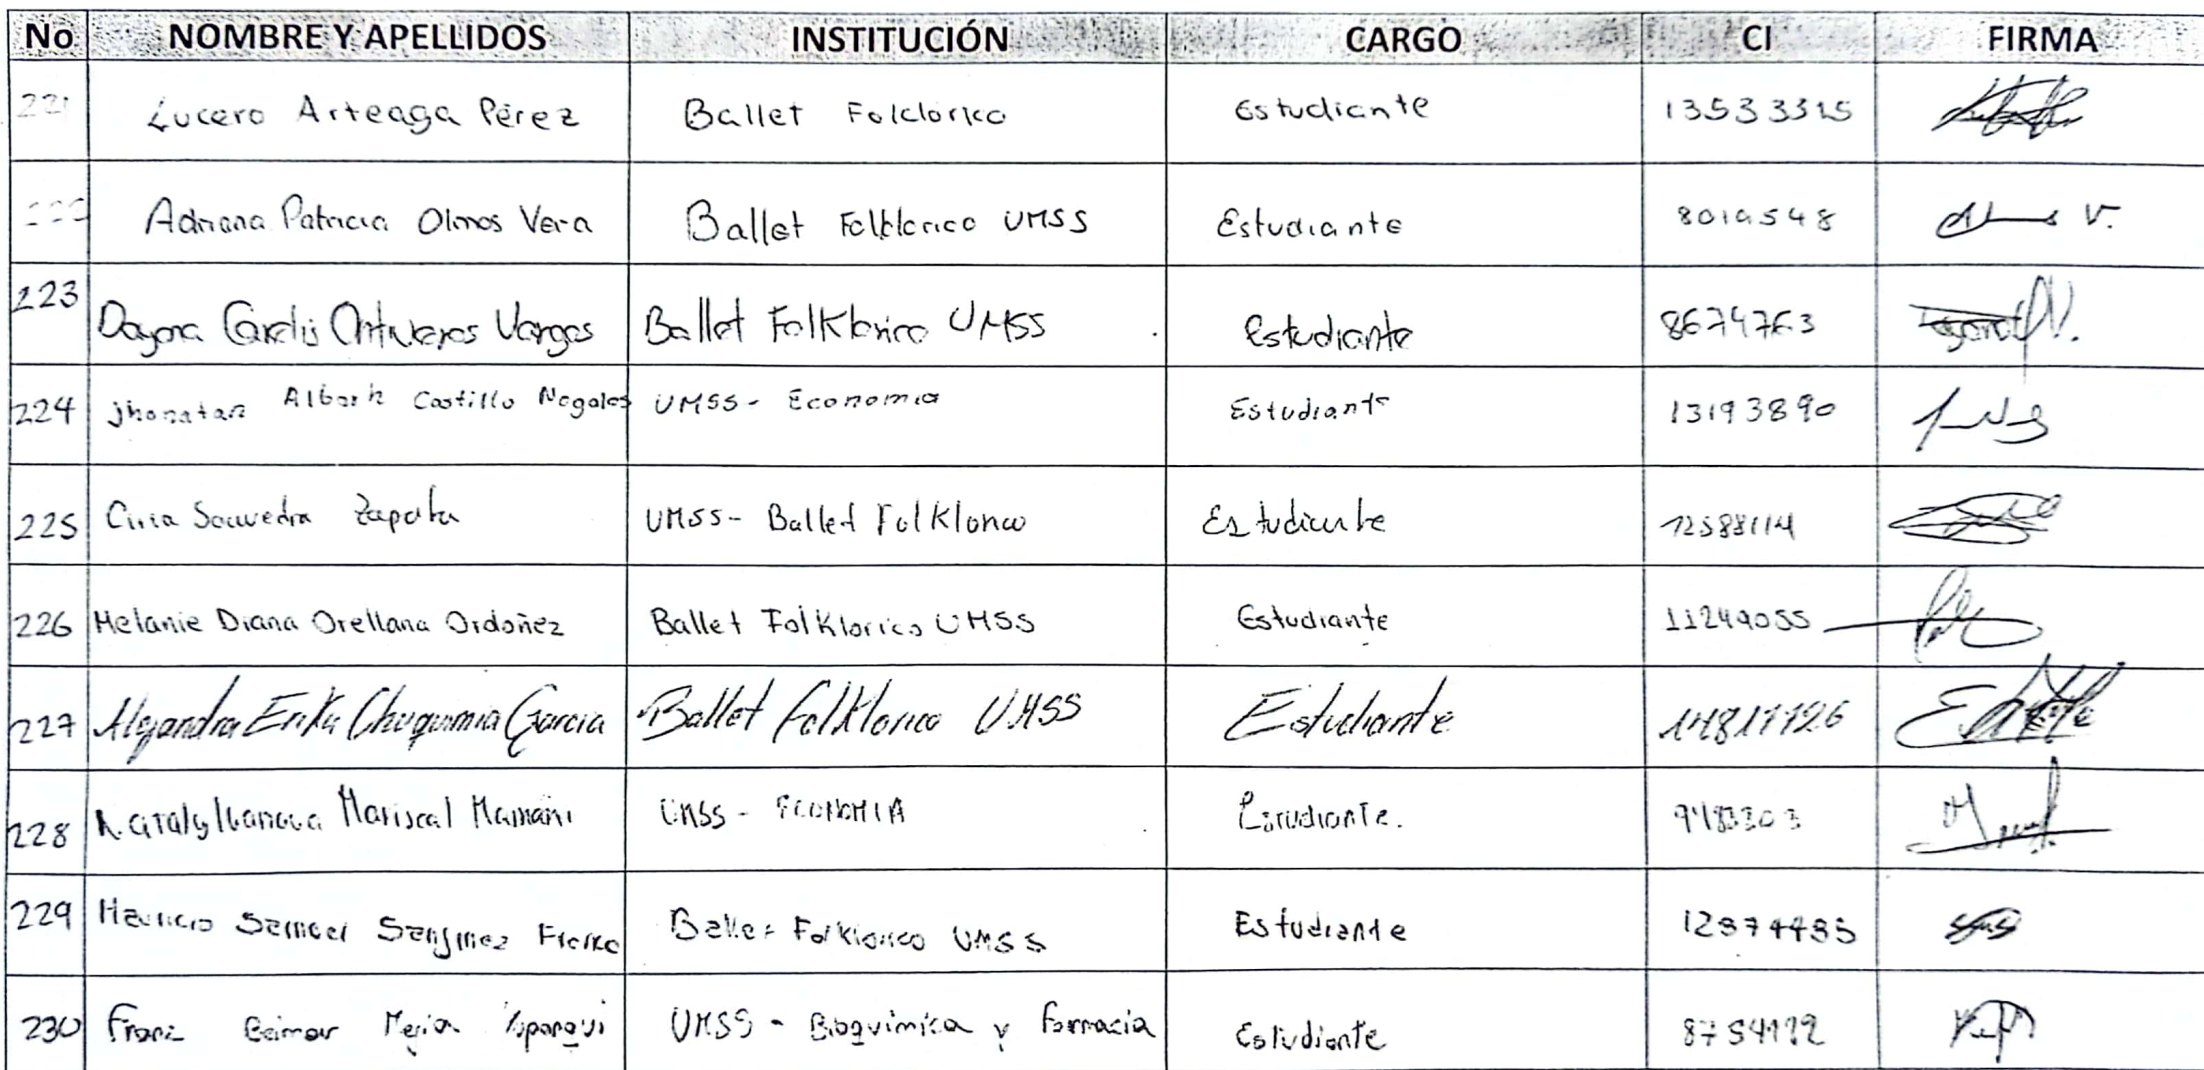 No NOMBRE Y APELLIDOS INSTITUCIÓN CARGO CI FIRMA
221 Lucero Arteaga Pérez Ballet Folclórico Estudiante 13533315
222 Adriana Patricia Olmos Vera Ballet Folklorico UMSS Estudiante 8019548
223 Dayana Carelis Ontiveros Vargas Ballet Folklorico UMSS Estudiante 8674763
224 jhonatan Albert Castillo Nogales UMSS - Economia Estudiante 13193890
225 Ciria Saavedra Zapata UMSS - Ballet Folklorico Estudiante 12588114
226 Melanie Diana Orellana Ordoñez Ballet Folklorico UMSS Estudiante 11249055
227 Alejandra Erika Chuquimia Garcia Ballet Folklorico UMSS Estudiante 14817726
228 Mariscal Mamani UMSS - ECONOMIA Estudiante.
229 Mauricio Samuel Ballet Folklorico UMSS Estudiante 12974485
230 Franz Beimar Mejia Yupanqui UMSS - Bioquimica y farmacia Estudiante